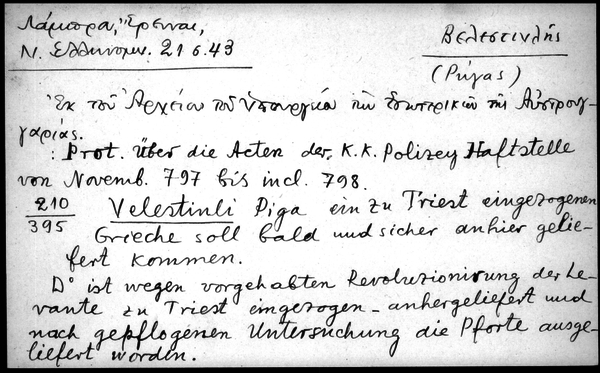 Λάμπρα, Ἔρευναι,
Ν. Ελληνομν. 21 σ. 43
Βελεστινλής
(Ρήγας)
Ἐκ τοῦ Ἀρχείου τοῦ Ὑπουργείου τῶν Ἐσωτερικῶν τῆς Αὐστρουγ-
γαρίας.
: Prot. über die Acten der K. K. Polizey Haftstelle
von Novemb. 797 bis incl. 798.
210
395
Velestinli Piga ein zu Triest eingezogenen
Grieche soll bald und sicher anhier gelie-
fert kommen.
Dº ist wegen vorgehabten Revoluzionirung der Le-
vante zu Triest eingezogen - anhergeliefert und
nach gepflogenen Untersuchung die Pforte ausge-
liefert worden.